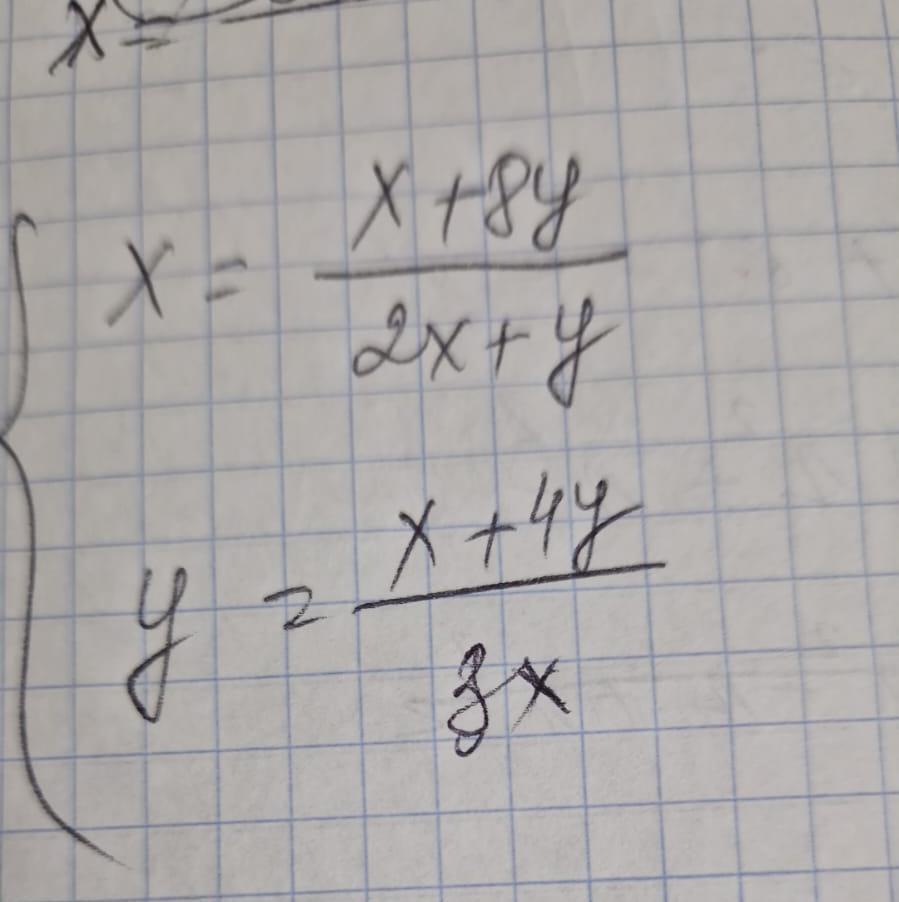 x =
x = (x + 8y) / (2x + y)
y = (x + 4y) / 3x